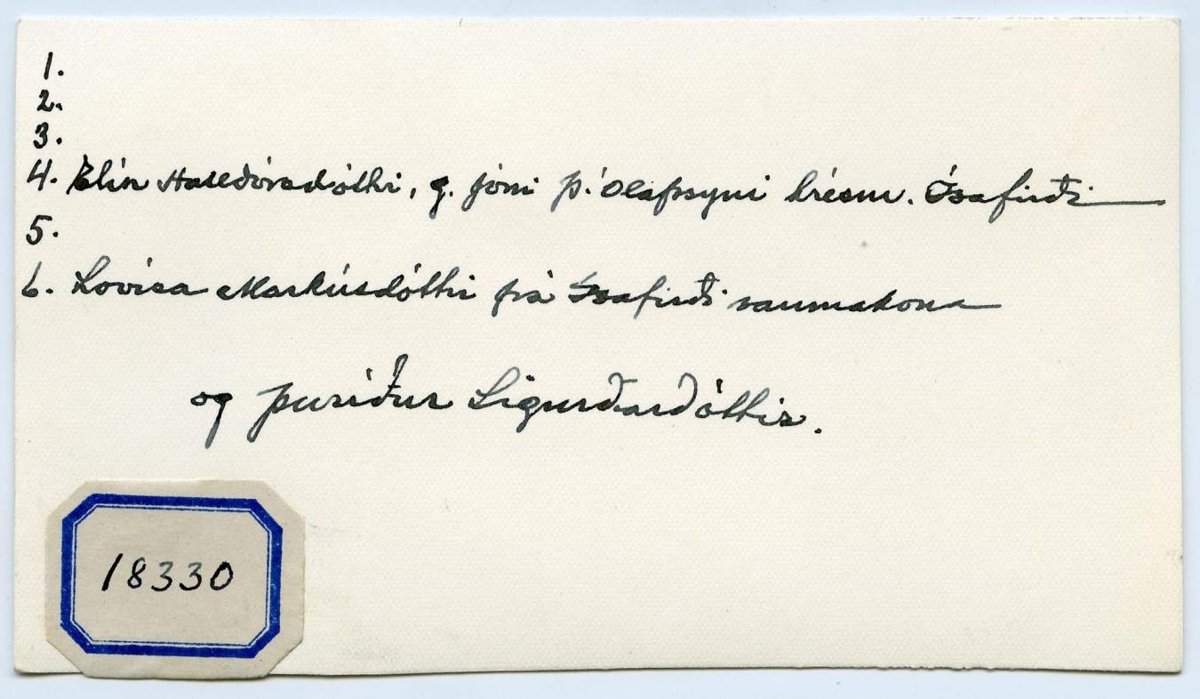 1.
2.
3.
4. Elín Halldórsdóttir, g. Jóni Þ. Ólafssyni trésm. Ísafirði
5.
6. Lovísa Markúsdóttir frá Ísafirði saumakona
og Þuríður Sigurðardóttir.
18330